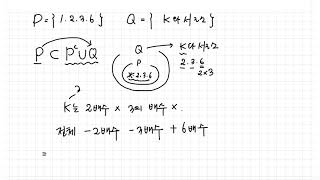 P={1.2.3.6} Q={K와서로소}
P ⊂ P^c∪Q
Q → K와서로소
P
2.3.6
2.3.6
2×3
?
K는 2배수 × 3의 배수 ×.
전체 -2배수 -3배수 +6배수
=